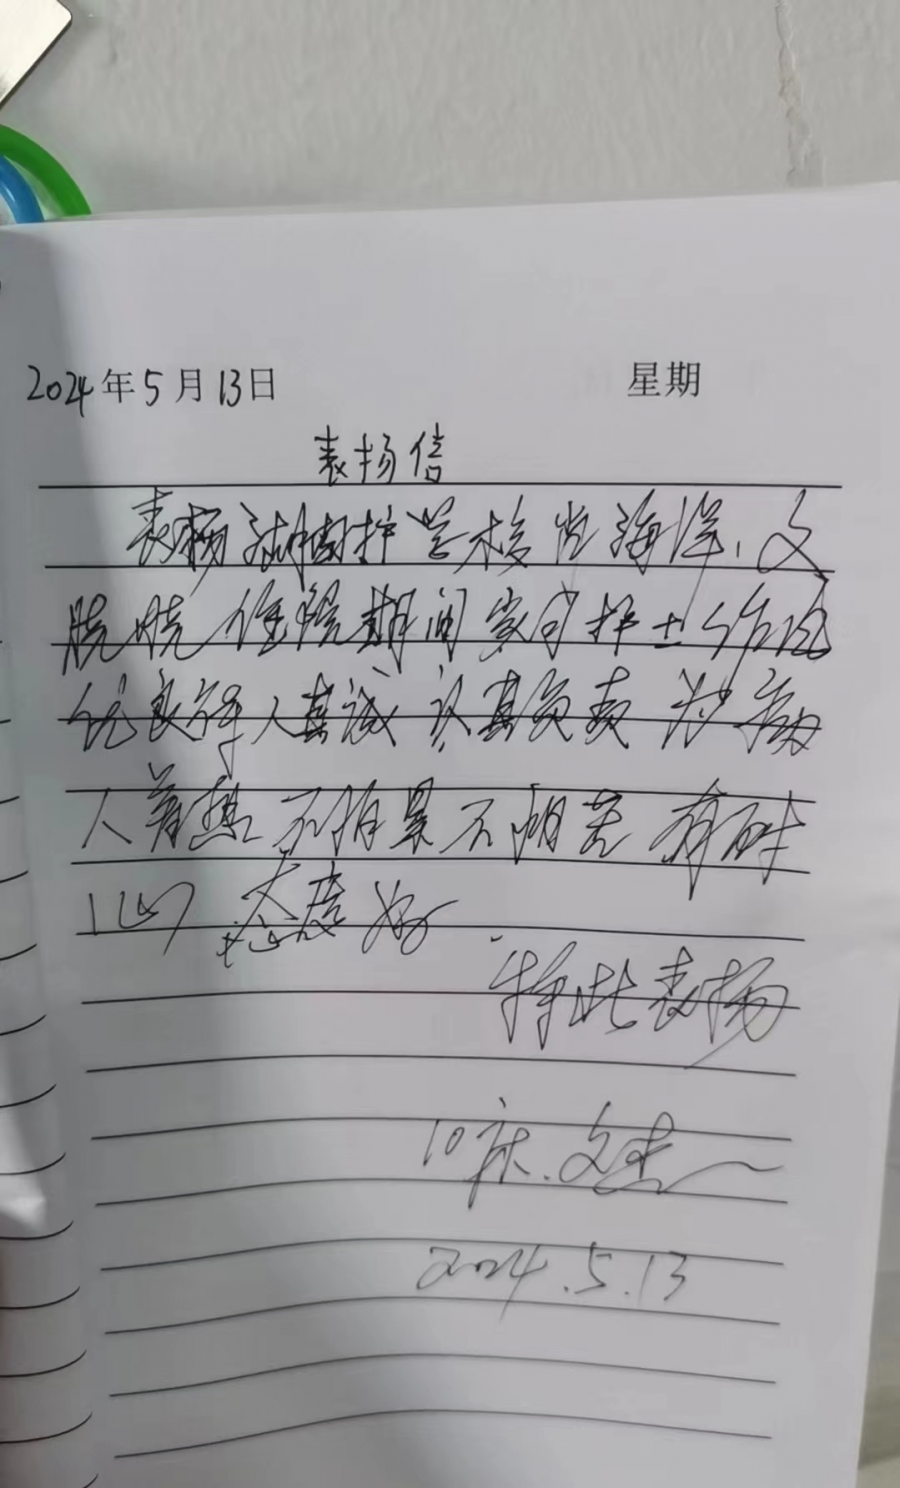 2024年5月13日 星期
表扬信
表扬 护学校 海洋、文
晓晓住院期间 护士作风
优良待人真诚 认真负责 为病
人着想 不怕累不怕苦 有耐
心 态度好
特此表扬
10床.文
2024.5.13